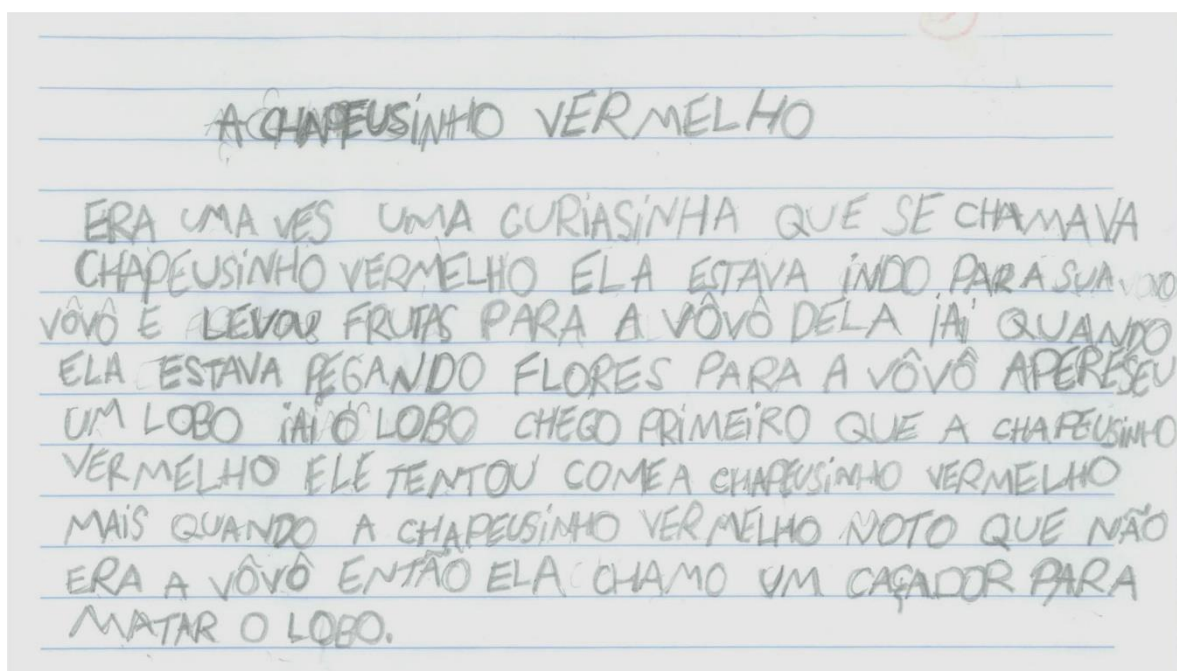 A CHAPEUSINHO VERMELHO
ERA UMA VES UMA GURIASINHA QUE SE CHAMAVA
CHAPEUSINHO VERMELHO ELA ESTAVA INDO PARA SUA
VÔVÔ E LEVOU FRUTAS PARA A VÔVÔ DELA IAI QUANDO
ELA ESTAVA PEGANDO FLORES PARA A VÔVÔ APERESEU
UM LOBO IAI O LOBO CHEGO PRIMEIRO QUE A CHAPEUSINHO
VERMELHO ELE TENTOU COME A CHAPEUSINHO VERMELHO
MAIS QUANDO A CHAPEUSINHO VERMELHO NOTO QUE NÃO
ERA A VÔVÔ ENTÃO ELA CHAMO UM CAÇADOR PARA
MATAR O LOBO.